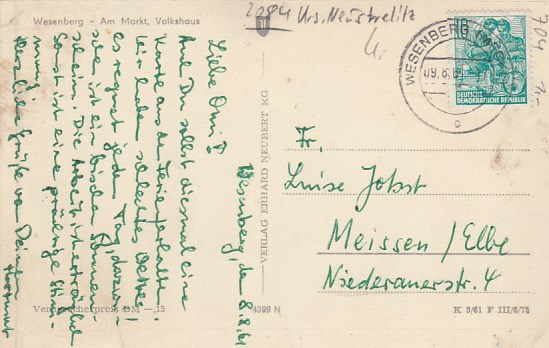 Wesenberg - Am Markt, Volkshaus
2084 Krs. Neustrelitz
WESENBERG
DEUTSCHE
DEMOKRATISCHE REPUBLIK
Wesenberg, den 8.8.61
Liebe Omi!
Auch Du sollst diesmal eine
Karte aus den Ferien erhalten.
Wir haben schlechtes Wetter!
es regnet jeden Tag, dazwi-
schen ist ein bißchen Sonnen-
schein. Die Arbeit ist erträglich
Sonst ist eine prächtige Stim-
mung.
Herzliche Grüße von Deinem
Hartmut
Fr.
Luise Jobst
Meissen / Elbe
Niederauerstr. 4
VERLAG ERHARD NEUBERT KG
Verbraucherpreis DM -,15
4399 N
K 5/61 F III/6/75